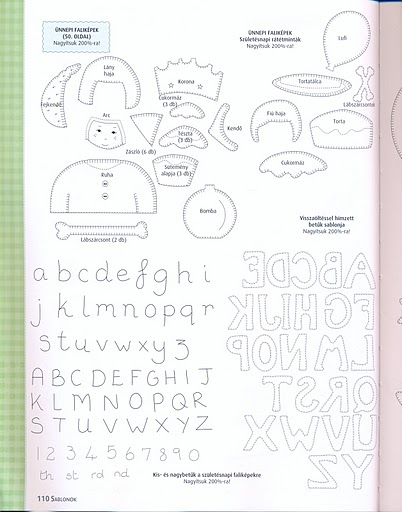 ÜNNEPI FALIKÉPEK
(50. OLDAL)
Nagyítsuk 200%-ra!
ÜNNEPI FALIKÉPEK
Születésnapi rátétminták
Nagyítsuk 200%-ra!
Lufi
Lány
haja
Korona
Tortatálca
Fejkendő
Cukormáz
(3 db)
Lábszárcsont
Arc
Kendő
Fiú haja
Torta
Tészta
(3 db)
Zászló (6 db)
Cukormáz
Sütemény
alapja (3 db)
Ruha
Bomba
Visszaöltéssel hímzett
betűk sablonja
Nagyítsuk 200%-ra!
Lábszárcsont (2 db)
a b c d e f g h i
j k l m n o p q r
s t u v w x y z
A B C D E F G H I J
K L M N O P Q R
S T U V W X Y Z
1 2 3 4 5 6 7 8 9 0
th st rd nd
ABCDE
FGHIJK
LMNOP
QRST
UVWX
YZ
Kis- és nagybetűk a születésnapi faliképekre
Nagyítsuk 200%-ra!
110 SABLONOK